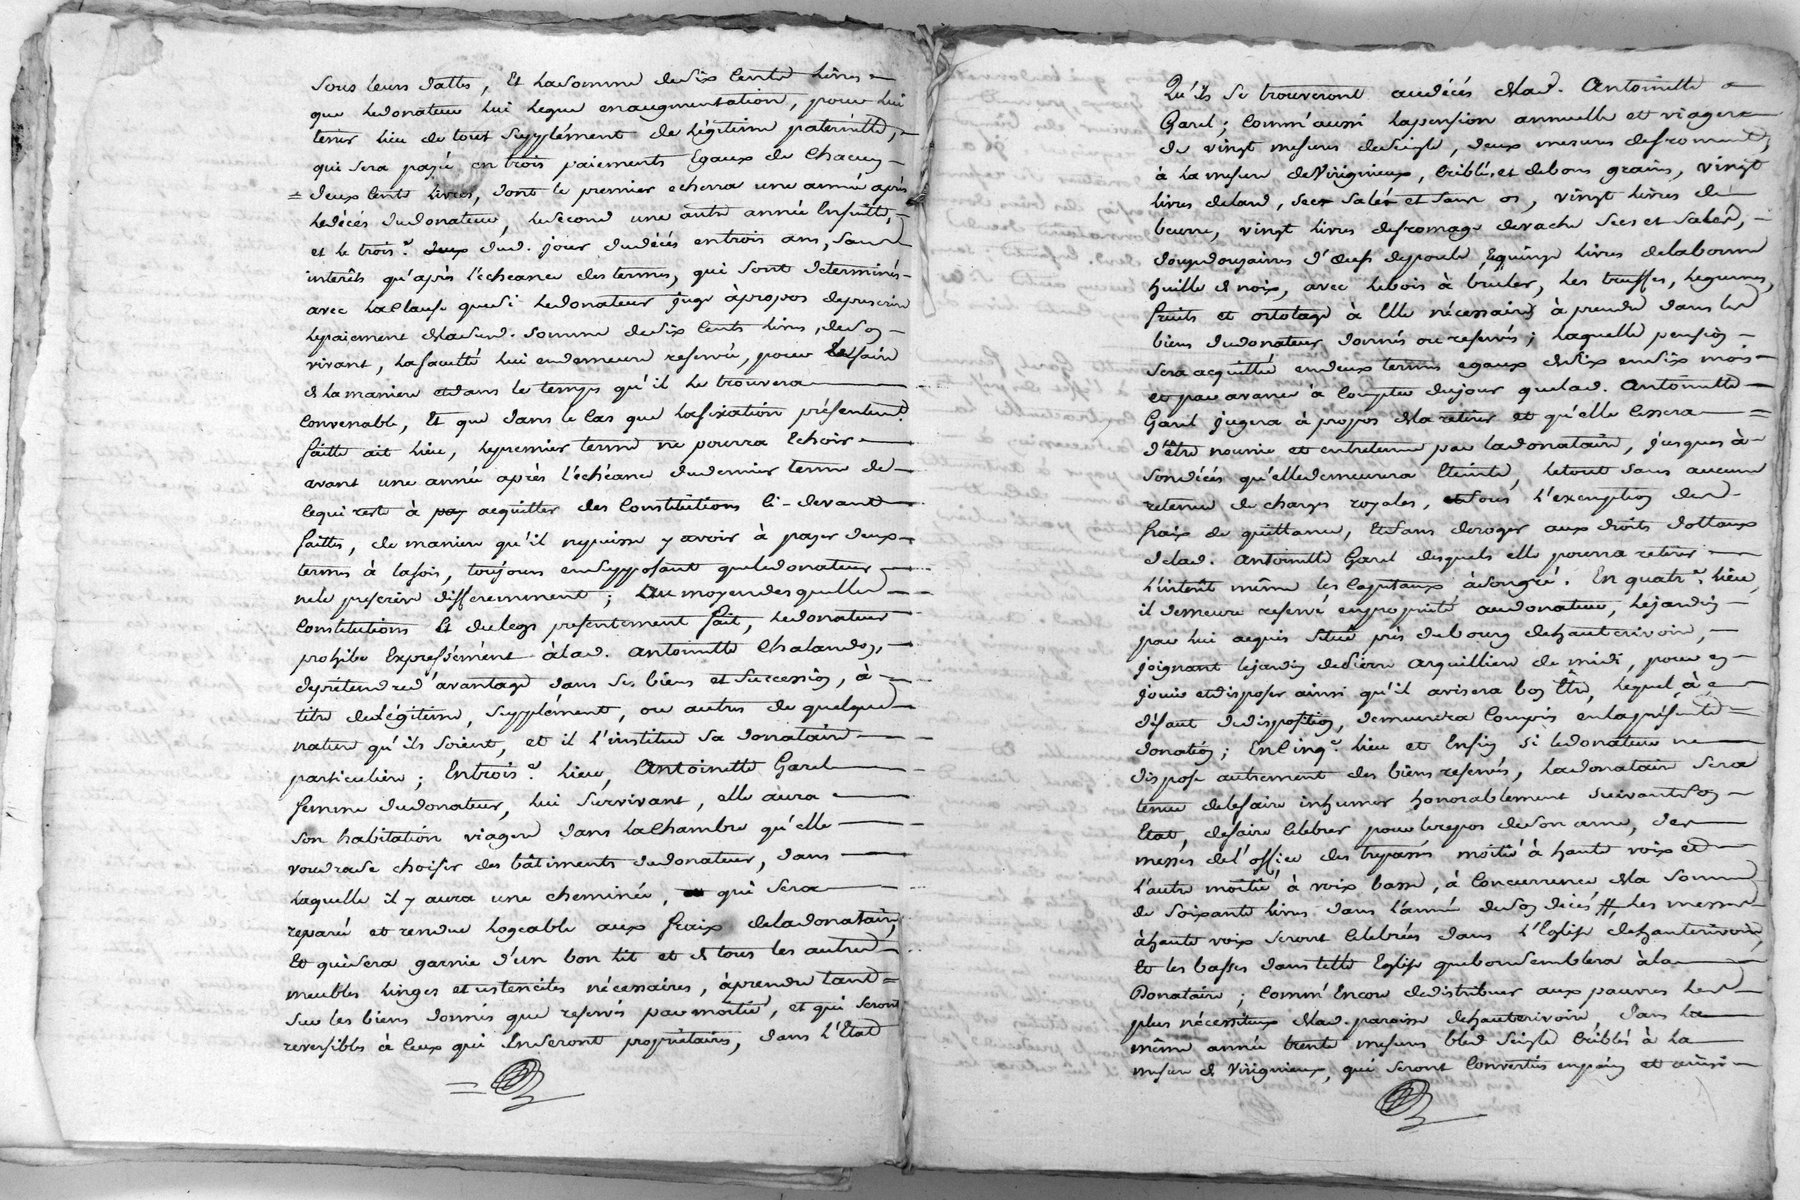 sous leurs dattes, Et la somme de six Cents Livres
que le donateur lui legue en augmentation, pour lui
tenir lieu de tout supplément de Légitime paternelle,
qui sera payé en trois paiements Egaux de Chacun
deux Cents Livres, dont le premier echerra une année après
le décés du donateur, le second une autre année Ensuitte,
et le trois.e dud. jour du décés en trois ans, sans
interêts qu'après l'écheance des termes, qui sont déterminés
avec la Clause que si le donateur juge àpropos de prescrire
le paiement de la susd. somme de six Cents Livres, de son
vivant, la faculté lui en demeure reservée, pour le faire
de la maniere et dans le temps qu'il le trouvera
Convenable, Et que dans le Cas que la fixation présentem.t
faitte ait lieu, le premier terme ne pourra Echoir
avant une année après l'échéance du dernier terme de
Ce qui reste à acquitter des Constitutions Ci-devant
faittes, de maniere qu'il ne puisse y avoir à payer deux
termes à la fois, toujours en supposant que le donateur
ne le prescrive differemment; Au moyen desquelles
Constitutions Et du legs presentement fait, le donateur
prohibe Expressément à lad. Antoinette Chalandon,
de prétendre d'avantage dans ses biens et Succession, à
titre de Légitime, Supplément, ou autres de quelque
nature qu'ils soient, et il l'institue sa donataire
particuliere; En trois.e lieu, Antoinette Garel
femme du donateur, lui survivant, elle aura
son habitation viagere dans la Chambre qu'elle
voudra se choisir des bâtiments du donateur, dans
laquelle il y aura une cheminée, qui sera
reparée et rendue logeable aux fraix de la donataire,
Et qui sera garnie d'un bon lit et de tous les autres
meubles linges et ustenciles nécessaires, à prendre tant
sur les biens donnés que reservés par moitié, et qui seront
reversibles à Ceux qui En seront propriétaires, dans l'Etat
Qu'ils se trouveront au décés de lad. Antoinette
Garel; Comm'aussi la pension annuelle et viagere
de vingt mesures de seigle, deux mesures de froment,
à la mesure de Virignieux, Criblés et de bons grains, vingt
livres de lard, sec salé et sans os, vingt livres de
beurre, vingt livres de fromage de vache secs et salés,
douze douzaines d'œufs de poule Et quinze livres de la bonne
huille de noix, avec le bois à brûler, les truffes, legumes,
fruits et ortolage à Elle nécessaires à prendre dans les
biens du donateur donnés ou reservés; laquelle pension
sera acquittée en deux termes egaux de six en six mois
et par avance à Compter du jour que lad. Antoinette
Garel jugera à propos de la retirer et qu'elle Cessera
d'être nourrie et entretenue par la donataire, jusques à
son décés qu'elle demeurera Eteinte, le tout sans aucune
retenue de charges royales, sous l'exemption des
fraix de quittance, Et sans deroger aux droits dottaux
de lad. Antoinette Garel desquels elle pourra retirer
l'intérêt même les Capitaux à son gré. En quatr.e lieu,
il demeure reservé en propriété au donateur, le jardin
par lui acquis situé près du bourg de hauterivoire,
joignant le jardin de Pierre Arquilliere de midi, pour en
jouir et disposer ainsi qu'il avisera bon Etre, lequel à
défaut de disposition, demeurera Compris en la présente
donation; En Cinq.e lieu et Enfin si le donateur ne
dispose autrement des biens reservés, la donataire sera
tenue de le faire inhumer honorablement suivant son
Etat, de faire Celebrer pour le repos de son ame, des
messes de l'office des trepassés moitié à haute voix et
l'autre moitié à voix basse, à Concurrence de la somme
de soixante livres dans l'année du son décés, les messes
à haute voix seront Celebrées dans l'Eglise de hauterivoire,
Et les basses dans telle Eglise que bon semblera à la
Donataire; Comm'Encore de distribuer aux pauvres les
plus nécessiteux de lad. paroisse de hauterivoire, dans la
même année trente mesures bled seigle Criblés à la
mesure de Virignieux, qui seront Convertis en pain et ainsi